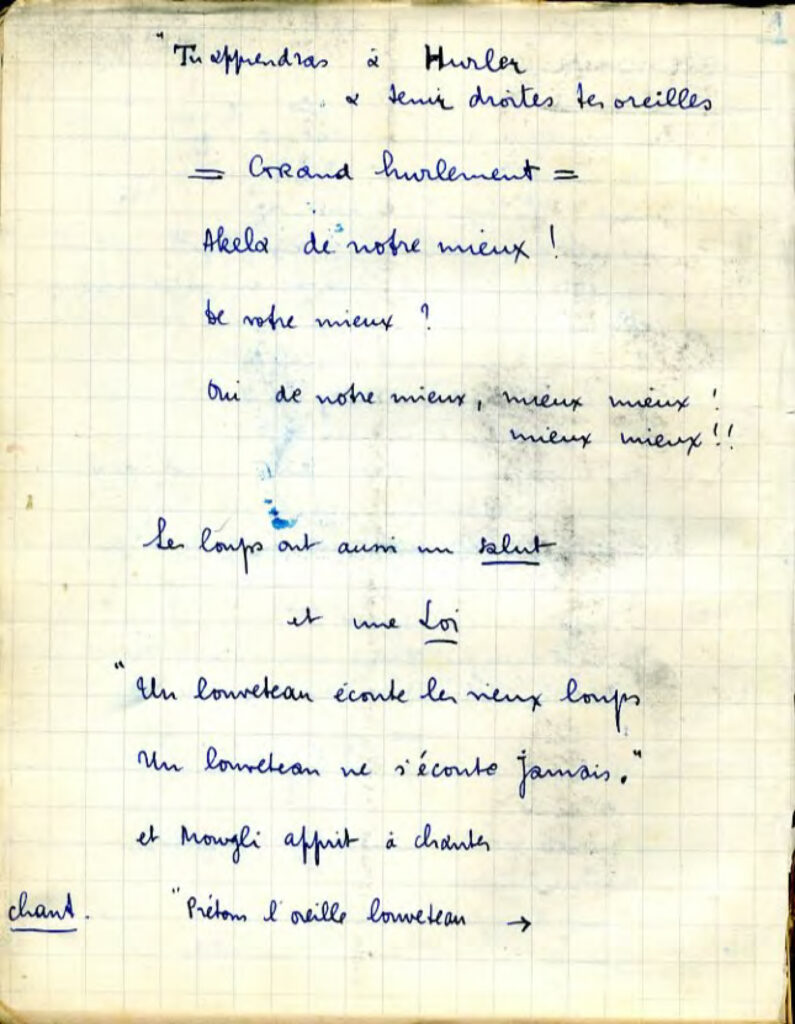 1
"Tu apprendras à Hurler
à tenir droites tes oreilles
= Grand hurlement =
Akela de notre mieux !
De votre mieux ?
Oui de notre mieux, mieux mieux !
mieux mieux !!
Les loups ont aussi un salut
et une Loi
"Un louveteau écoute les vieux loups
Un louveteau ne s'écoute jamais."
et Mowgli apprit à chanter
chant. "Prêtons l'oreille louveteau →